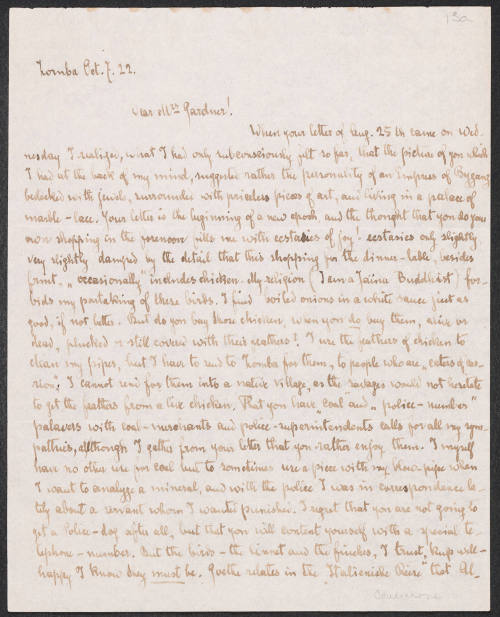 13a
Zomba Oct. 7. 22.
Dear Mrs Gardner!
When your letter of Aug. 25th came on Wed-
nesday I realized, what I had only subconsciously felt so far, that the picture of you which
I had at the back of my mind, suggested rather the personality of an Empress of Byzanz
bedecked with jewels, surrounded with priceless pieces of art, and living in a palace of
marble-lace. Your letter is the beginning of a new epoch, and the thought that you do your
own shopping in the forenoon fills me with ecstasies of joy! ecstasies only slightly
very slightly damped by the detail that this shopping for the dinner-table, besides
fruit - „occasionally" includes chicken. My religion (I am a Jaina Buddhist) for-
bids my partaking of these birds. I find boiled onions in a white sauce just as
good, if not better. But do you buy those chicken, when you do buy them, alive or
dead, plucked or still covered with their feathers? I use the feathers of chicken to
clean my pipes, but I have to send to Zomba for them, to people who are „eaters of car-
rion". I cannot send for them into a native village, as the savages would not hesitate
to get the feathers from a live chicken. That you have „coal" and „police-number"
palavers with coal-merchants and police-superintendents calls for all my sym-
pathies, although I gather from your letter that you rather enjoy them. I myself
have no other use for coal but to sometimes use a piece with my blow-pipe when
I want to analyze a mineral, and with the police I was in correspondence la-
tely about a servant whom I wanted punished. I regret that you are not going to
get a Police-dog after all, but that you will content yourself with a special te-
lephone-number. But the birds - the linnet and the finches, I trust, keep well-
happy I know they must be. Goethe relates in the „Italienische Reise" that Al-